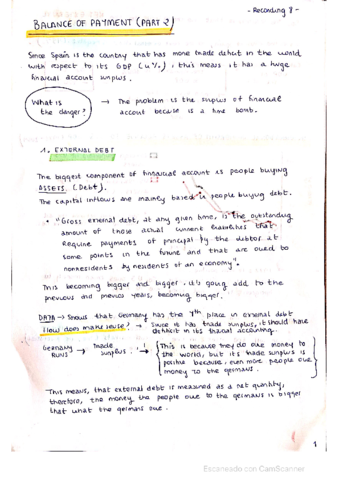 - Recording 8 -
BALANCE OF PAYMENT (PART 2)
Since Spain is the country that has more trade deficit in the world
with respect to its GDP (4%), this means it has a huge
financial account surplus.
What is
the danger?
→ The problem is the surplus of financial
account because is a time bomb.
1. EXTERNAL DEBT
The biggest component of financial account is people buying
ASSETS. (Debt).
The capital inflows are mainly based in people buying debt.
• "Gross external debt, at any given time, is the outstanding
amount of those actual current liabilities that
require payments of principal by the debtor at
some points in the future and that are owed to
nonresidents by residents of an economy".
This becoming bigger and bigger, it's going add to the
previous and previos years, becoming bigger.
DATA → Shows that Germany has the 4th place in external debt
How does make sense? → Since it has trade surplus, it should have
deficit in its financial accounting.
Germany
RUNS → Trade
surplus
This is because they do owe money to
the world, but its trade surplus is
positive because, even more people owe
money to the germans.
This means, that external debt is measured as a net quantity,
therefore, the money the people owe to the germans is bigger
that what the germans owe.
1
Escaneado con CamScanner